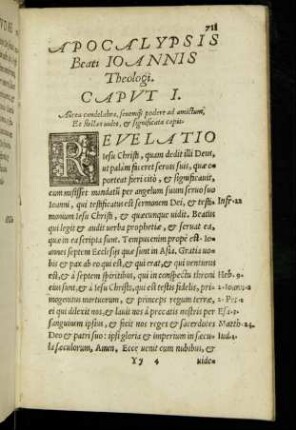 711
APOCALYPSIS
Beati IOANNIS
Theologi.
CAPVT I.
Aurea candelabra, septemq; podere ad amictum,
Et stellas uidit, & significata capit.
REVELATIO
Iesu Christi, quam dedit illi Deus,
ut palàm faceret seruis suis, quæ o-
porteat fieri citò, & significauit,
cum misisset mandatũ per angelum suum seruo suo
Ioanni, qui testificatus est sermonem Dei, & testi-
monium Iesu Christi, & quæcunque uidit. Beatus
qui legit & audit uerba prophetiæ, & seruat ea,
quæ in ea scripta sunt. Tempus enim propè est. Io-
annes septem Ecclesijs quæ sunt in Asia. Gratia uo-
bis & pax ab eo qui est, & qui erat, & qui venturus
est, & à septem spiritibus, qui in conspectu throni
eius sunt, & à Iesu Christo, qui est testis fidelis, pri-
mogenitus mortuorum, & princeps regum terræ,
ei qui dilexit nos, & lauit nos à peccatis nostris per
sanguinem ipsius, & fecit nos reges & sacerdotes
Deo & patri suo: ipsi gloria & imperium in sæcu-
la sæculorum, Amen. Ecce uenit cum nubibus, &
Yy 4
uide-
Infr. 22
Heb. 9.
1. Ioan. 1
1. Pet. 1
Matth. 24.